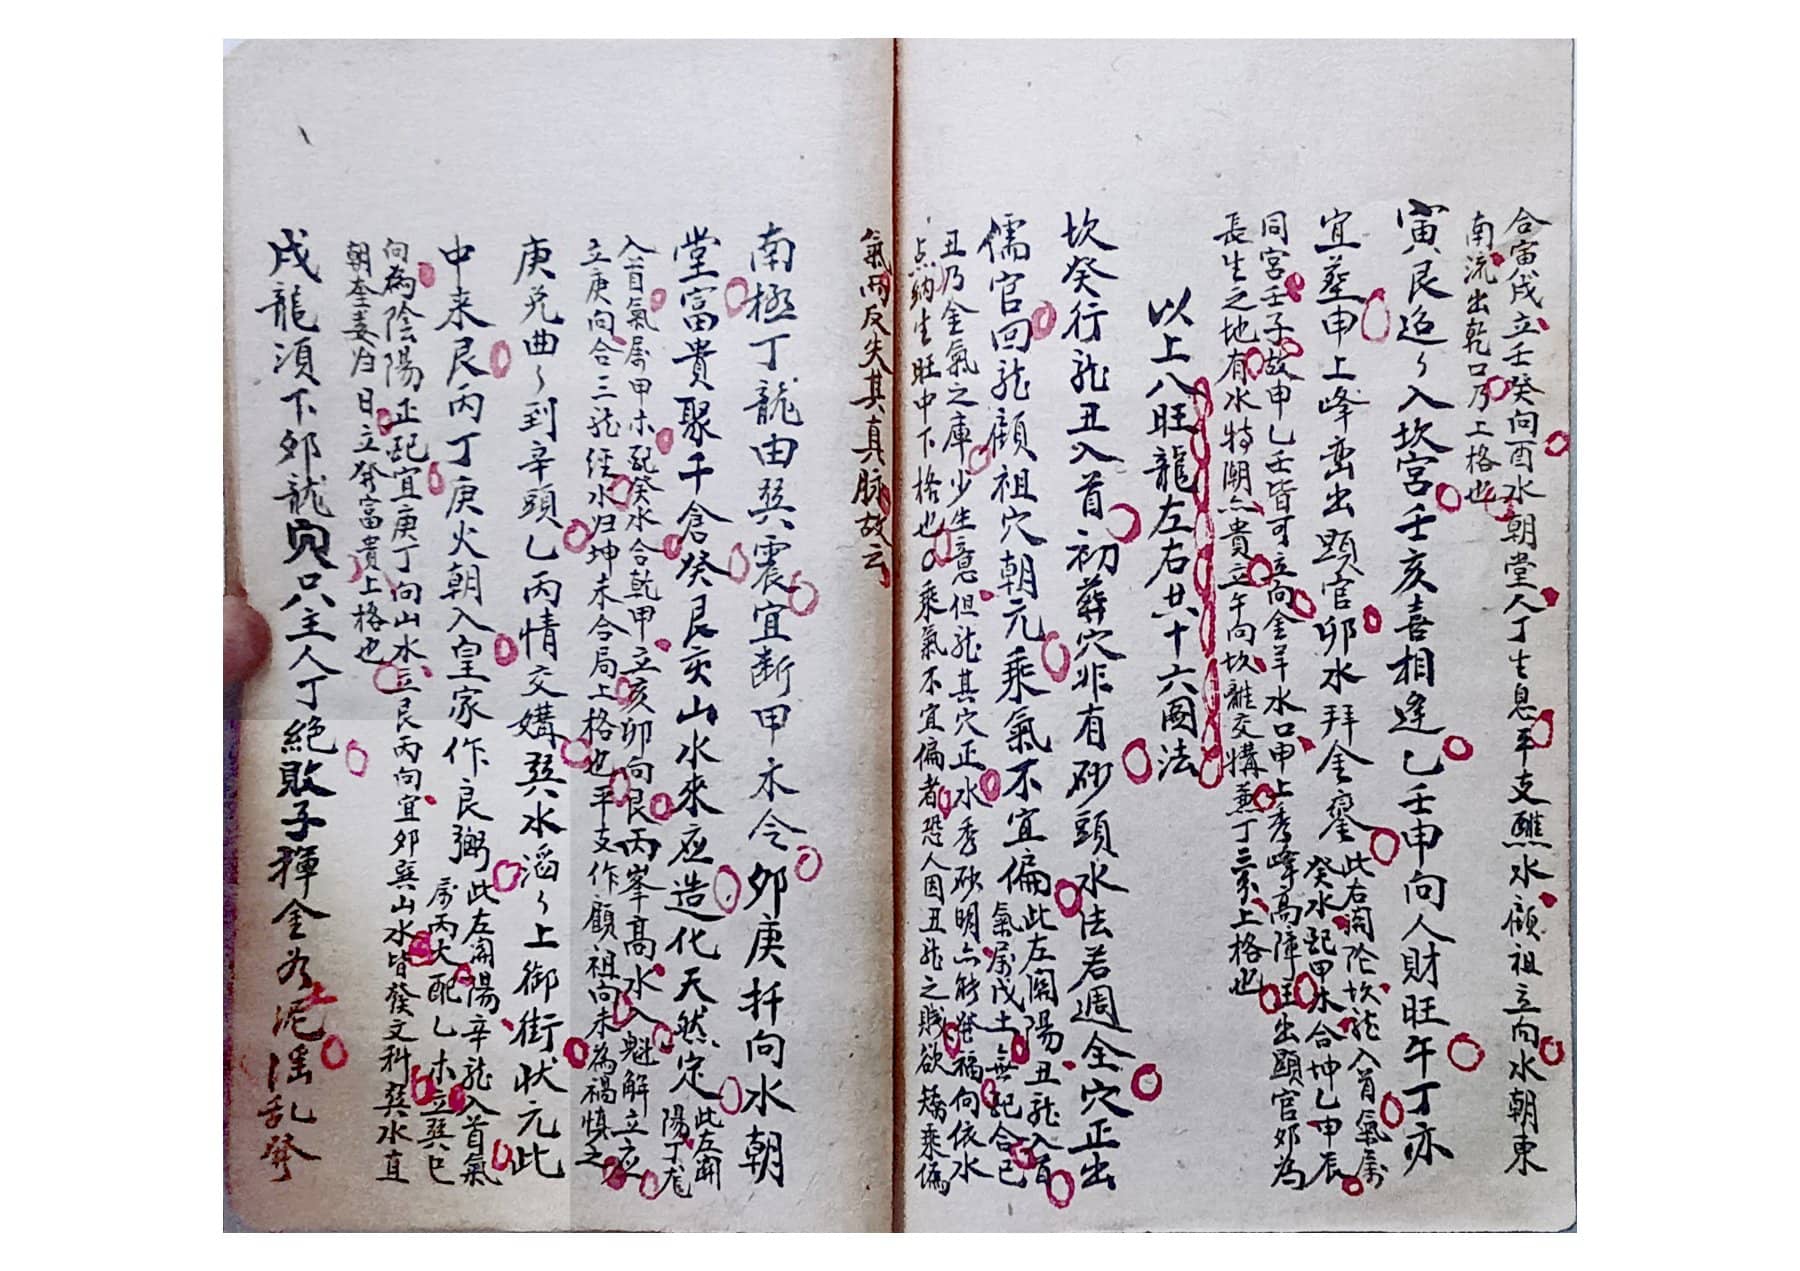 合寅戌立壬癸向酉水朝堂人丁生息平支醮水顧祖立向水朝東
南流出乾口乃上格也
寅艮迢々入坎宮壬亥喜相逢乙壬申向人財旺午丁亦
宜塟申上峰巒出顕官卯水拜金鑾
此右關陀坎龍入首氣属
癸水配甲木合坤乙申辰
同宮壬子故申乙壬皆可立向金羊水口申上秀峰高障王出顕官郊為
長生之地有水特潮亦貴立午向坎離交媾蕙丁三系上格也
以上八旺龍左右共十六圖法
坎癸行龍丑入首初葬穴非有砂頭水法若週全穴正出
儒官回龍顧祖穴朝元乘氣不宜偏
此左關陽丑龍入首
氣属戊土無配合巳
丑乃金氣之庫少生意但龍其穴正水秀砂明亦能発福向依水
点納生旺中下格也〇乘氣不宜偏者恐人因丑龍之賎欲矯乘偏
氣而反失其真脉故云
南極丁龍由巽震宜断甲木令邜庚扦向水朝
堂富貴聚千倉癸艮亥山水來应造化天然定
此左關
陽丁尨
入首氣属甲木配癸水合乾甲立亥卯向艮丙峯高水入魁解立应
立庚向合三龍經水归坤未合局上格也平支作顧祖向未為禍慎之
庚兌曲々到辛頭乙丙情交媾巽水滔々上御街状元此
中来艮丙丁庚火朝入皇家作良弼
此左関陽辛龍入首氣
属丙火配乙木立巽巳
向為陰陽正配宜庚丁向山水立艮丙向宜郊巽山水皆發文科巽水直
朝奎婁归日立発富貴上格也
戌龍湏下邜龍穴只主人丁絶敗子揮金为泥滛乱發